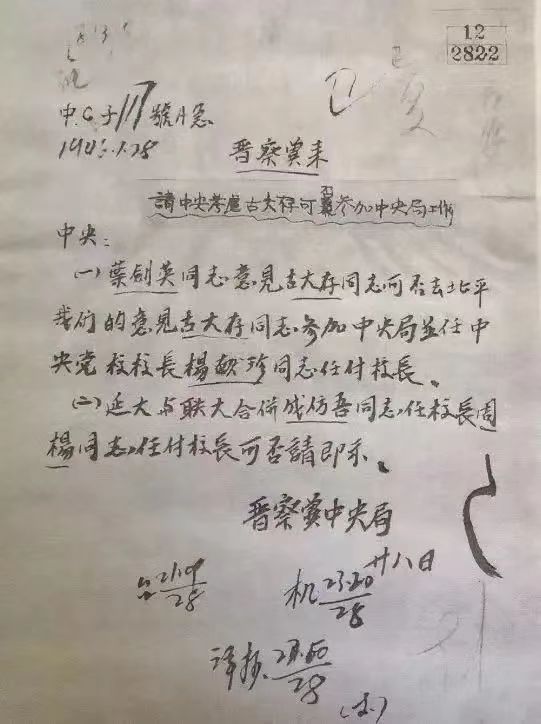 12
2822
中C子117號A急
194 .1.28
晋察冀来
請中央考慮古大存可否参加中央局工作
中央：
(一)葉劍英同志意見古大存同志可否去北平
我们的意見古大存同志参加中央局並任中
央党校校長楊献珍同志任付校長。
(二)延大与联大合併成仿吾同志任校長周
楊同志任付校長可否請即示。
晋察冀中央局
廿八日
台 21.09/28
机 23.20/28
譯校 23.50/28